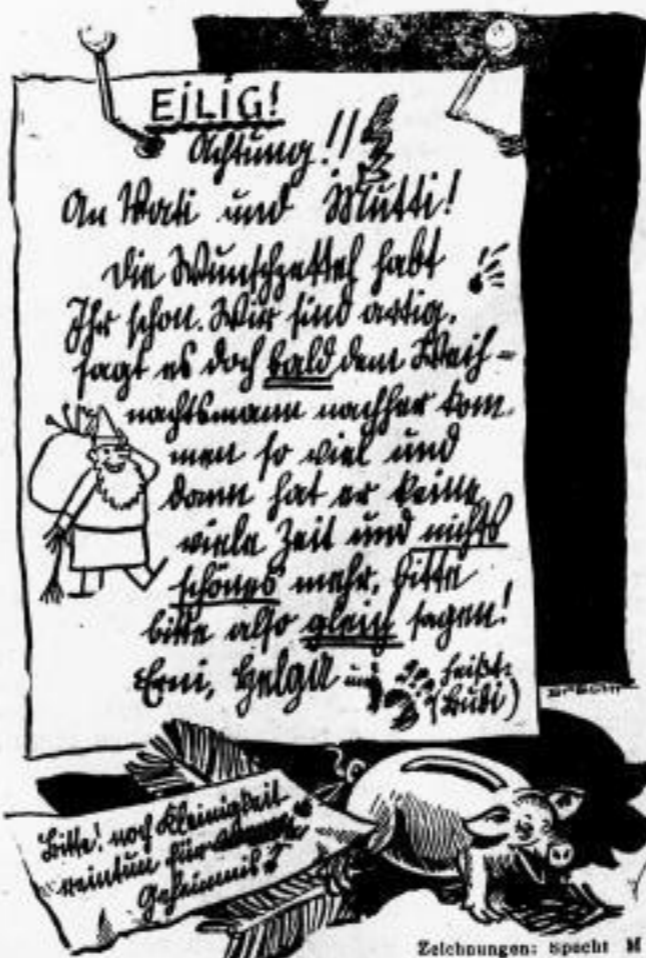 EiLiG!
Achtung!!
An Vati und Mutti!
Die Wunschzettel habt
Ihr schon. Wir sind artig.
sagt es doch bald dem Weih=
nachtsmann nachher kom-
men so viel und
dann hat er keine
viele Zeit und nichts
schönes mehr, bitte
bitte also gleich sagen!
Erni, Helga und heißt:
(Bubi)
SPECHT
Bitte! noch Kleinigkeit
reintun für
Geheimnis
Zeichnungen: Specht M